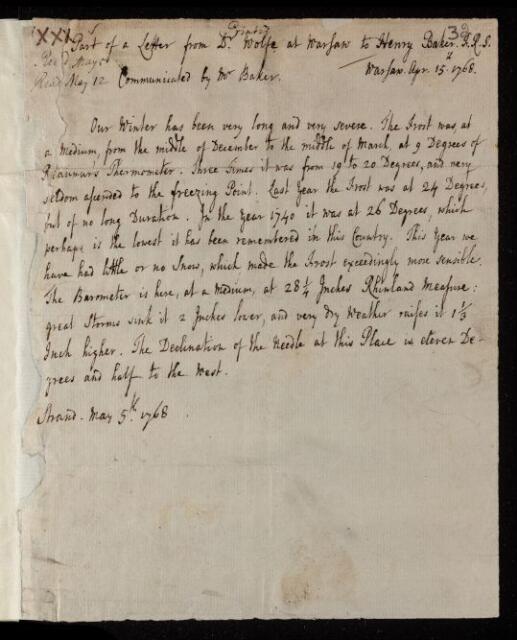 XXI. Printed 32
Part of a Letter from Dr. Wolfe at Warsaw to Henry Baker. F.R.S.
Rec'd May 5
Warsaw. Apr. 15th. 1768.
Read May 12 Communicated by Mr Baker.
Our Winter has been very long and very severe. The Frost was, at
a Medium, from the middle of December to the middle of March, at 9 Degrees of
Reaumur's Thermometer. Three times it was from 19 to 20 Degrees, and very
seldom ascended to the freezing Point. Last Year the Frost was at 24 Degrees,
but of no long Duration. In the Year 1740 it was at 26 Degrees, which
perhaps is the lowest it has been remembered in this Country. This Year we
have had little or no Snow, which made the Frost exceedingly more sensible.
The Barometer is here, at a Medium, at 28 1/4 Inches Rhinland Measure:
great Storms sink it 2 Inches lower, and very dry Weather raises it 1 1/3
Inch higher. The Declination of the Needle at this Place is eleven De-
grees and half to the West.
Strand. May 5th. 1768.